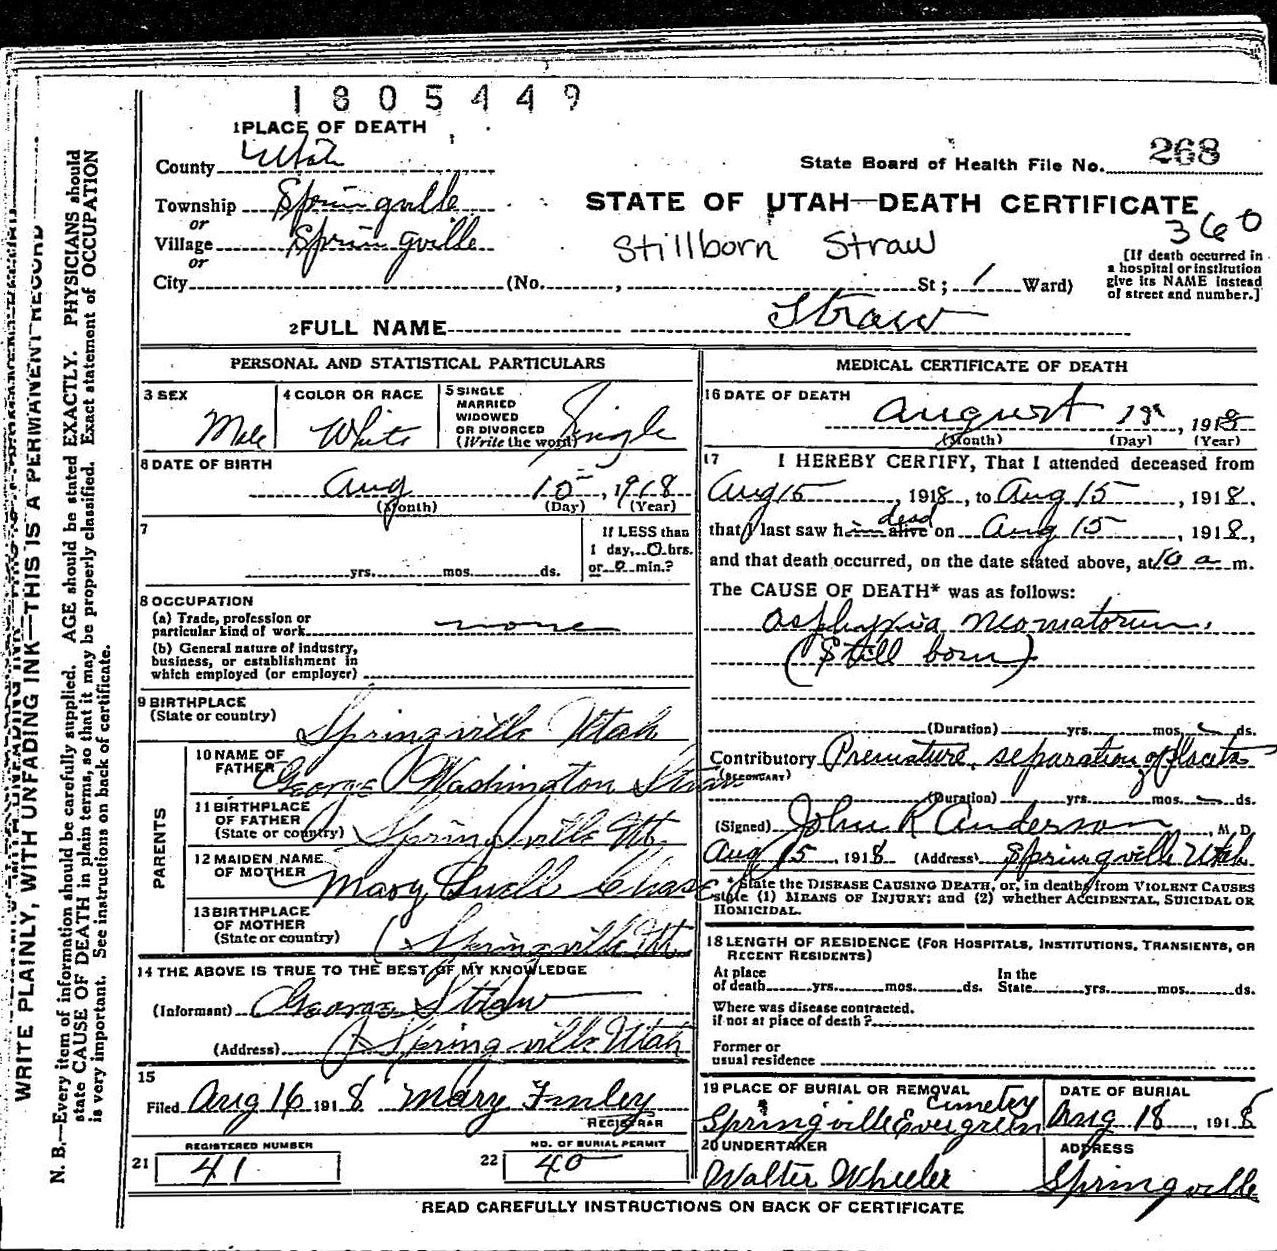 1805449
1 PLACE OF DEATH
County Utah
State Board of Health File No. 268
Township Springville
or
STATE OF UTAH—DEATH CERTIFICATE
360
Village Springville
or
Stillborn Straw
City (No. , St; 1 Ward)
[If death occurred in
a hospital or institution
give its NAME instead
of street and number.]
2 FULL NAME Straw
PERSONAL AND STATISTICAL PARTICULARS
3 SEX
Male
4 COLOR OR RACE
White
5 SINGLE
MARRIED
WIDOWED
OR DIVORCED
(Write the word)
Single
6 DATE OF BIRTH
Aug 15, 1918
(Month) (Day) (Year)
7
yrs. mos. ds.
If LESS than
1 day, 0 hrs.
or 0 min.?
8 OCCUPATION
(a) Trade, profession or
particular kind of work none
(b) General nature of industry,
business, or establishment in
which employed (or employer)
9 BIRTHPLACE
(State or country) Springville Utah
PARENTS
10 NAME OF
FATHER George Washington Straw
11 BIRTHPLACE
OF FATHER
(State or country) Springville Ut.
12 MAIDEN NAME
OF MOTHER Mary Chase
13 BIRTHPLACE
OF MOTHER
(State or country) Springville Ut
14 THE ABOVE IS TRUE TO THE BEST OF MY KNOWLEDGE
(Informant) George Straw
(Address) Springville Utah
15
Filed Aug 16 1918 Mary Finley
REGISTRAR
REGISTERED NUMBER
21 41
NO. OF BURIAL PERMIT
22 40
MEDICAL CERTIFICATE OF DEATH
16 DATE OF DEATH
August , 1918
(Month) (Day) (Year)
17 I HEREBY CERTIFY, That I attended deceased from
Aug 15, 1918, to Aug 15, 1918,
dead
that I last saw him alive on Aug 15, 1918,
and that death occurred, on the date stated above, at 10 a m.
The CAUSE OF DEATH* was as follows:
Asphyxia Neonatorum.
(Still born)
(Duration) yrs. mos. ds.
Contributory Premature separation of Placenta
(SECONDARY)
(Duration) yrs. mos. ds.
(Signed) John R Anderson, M D
Aug 15, 1918 (Address) Springville Utah
* State the DISEASE CAUSING DEATH, or, in deaths from VIOLENT CAUSES
state (1) MEANS OF INJURY; and (2) whether ACCIDENTAL, SUICIDAL OR
HOMICIDAL.
18 LENGTH OF RESIDENCE (FOR HOSPITALS, INSTITUTIONS, TRANSIENTS, OR
RECENT RESIDENTS)
At place
of death yrs. mos. ds.
In the
State yrs. mos. ds.
Where was disease contracted.
if not at place of death?
Former or
usual residence
19 PLACE OF BURIAL OR REMOVAL
Cimetry
Springville Evergreen
DATE OF BURIAL
Aug 18, 1918
20 UNDERTAKER
Walter Wheeler
ADDRESS
Springville
READ CAREFULLY INSTRUCTIONS ON BACK OF CERTIFICATE
WRITE PLAINLY, WITH UNFADING INK—THIS IS A PERMANENT RECORD
N. B.—Every item of information should be carefully supplied. AGE should be stated EXACTLY. PHYSICIANS should
state CAUSE OF DEATH in plain terms, so that it may be properly classified. Exact statement of OCCUPATION
is very important. See instructions on back of certificate.